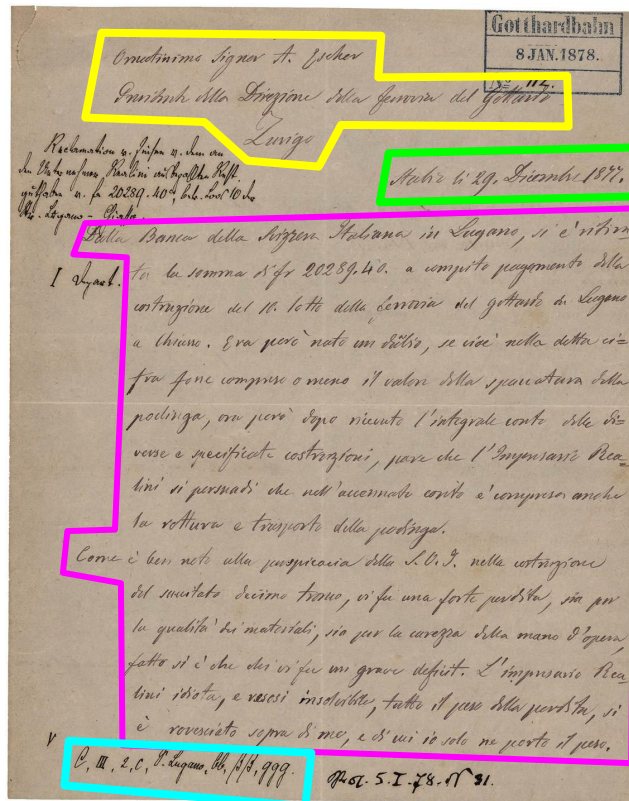 Gotthardbahn
8 JAN. 1878.
Nº 114.
Ornatissimo Signor A. Escher
Presidente della Direzione della ferrovia del Gottardo
Zurigo
Reclamation
den Unternehmer Realini
20289.40
Lugano - Chiasso
Stabio li 29. Dicembre 1877.
Dalla Banca della Svizzera Italiana in Lugano, si è ritira=
I Depart.
ta la somma di fr 20289.40. a compito pagamento della
costruzione del 10. lotto della ferrovia del gottardo da Lugano
a Chiasso. Era però nato un dubio, se cioè nella detta ci=
fra fosse compreso o meno il valore della spaccatura della
podinga, ora però dopo ricevuto l'integrale conto delle di=
verse e specificate costruzioni, pare che l'Impresario Rea=
lini si persuadi che nell'accennato conto è compreso anche
la rottura e trasporto della podinga.
Come è ben noto alla perspicacia della S.V.I. nella costruzione
del succitato decimo tronco, vi fu una forte perdita, sia per
la qualità dei materiali, sia per la carezza della mano d'opera,
fatto si è che chi vi fu un grave deficit. L'impresario Rea=
lini idiota, e resosi insolvibile, tutto il peso della perdita, si
è rovesciato sopra di me, e di cui io solo ne porto il peso.
V
C, III, 2, c, P. Lugano, bb, ggg.
Prot. 5. I. 78. Nº 31.